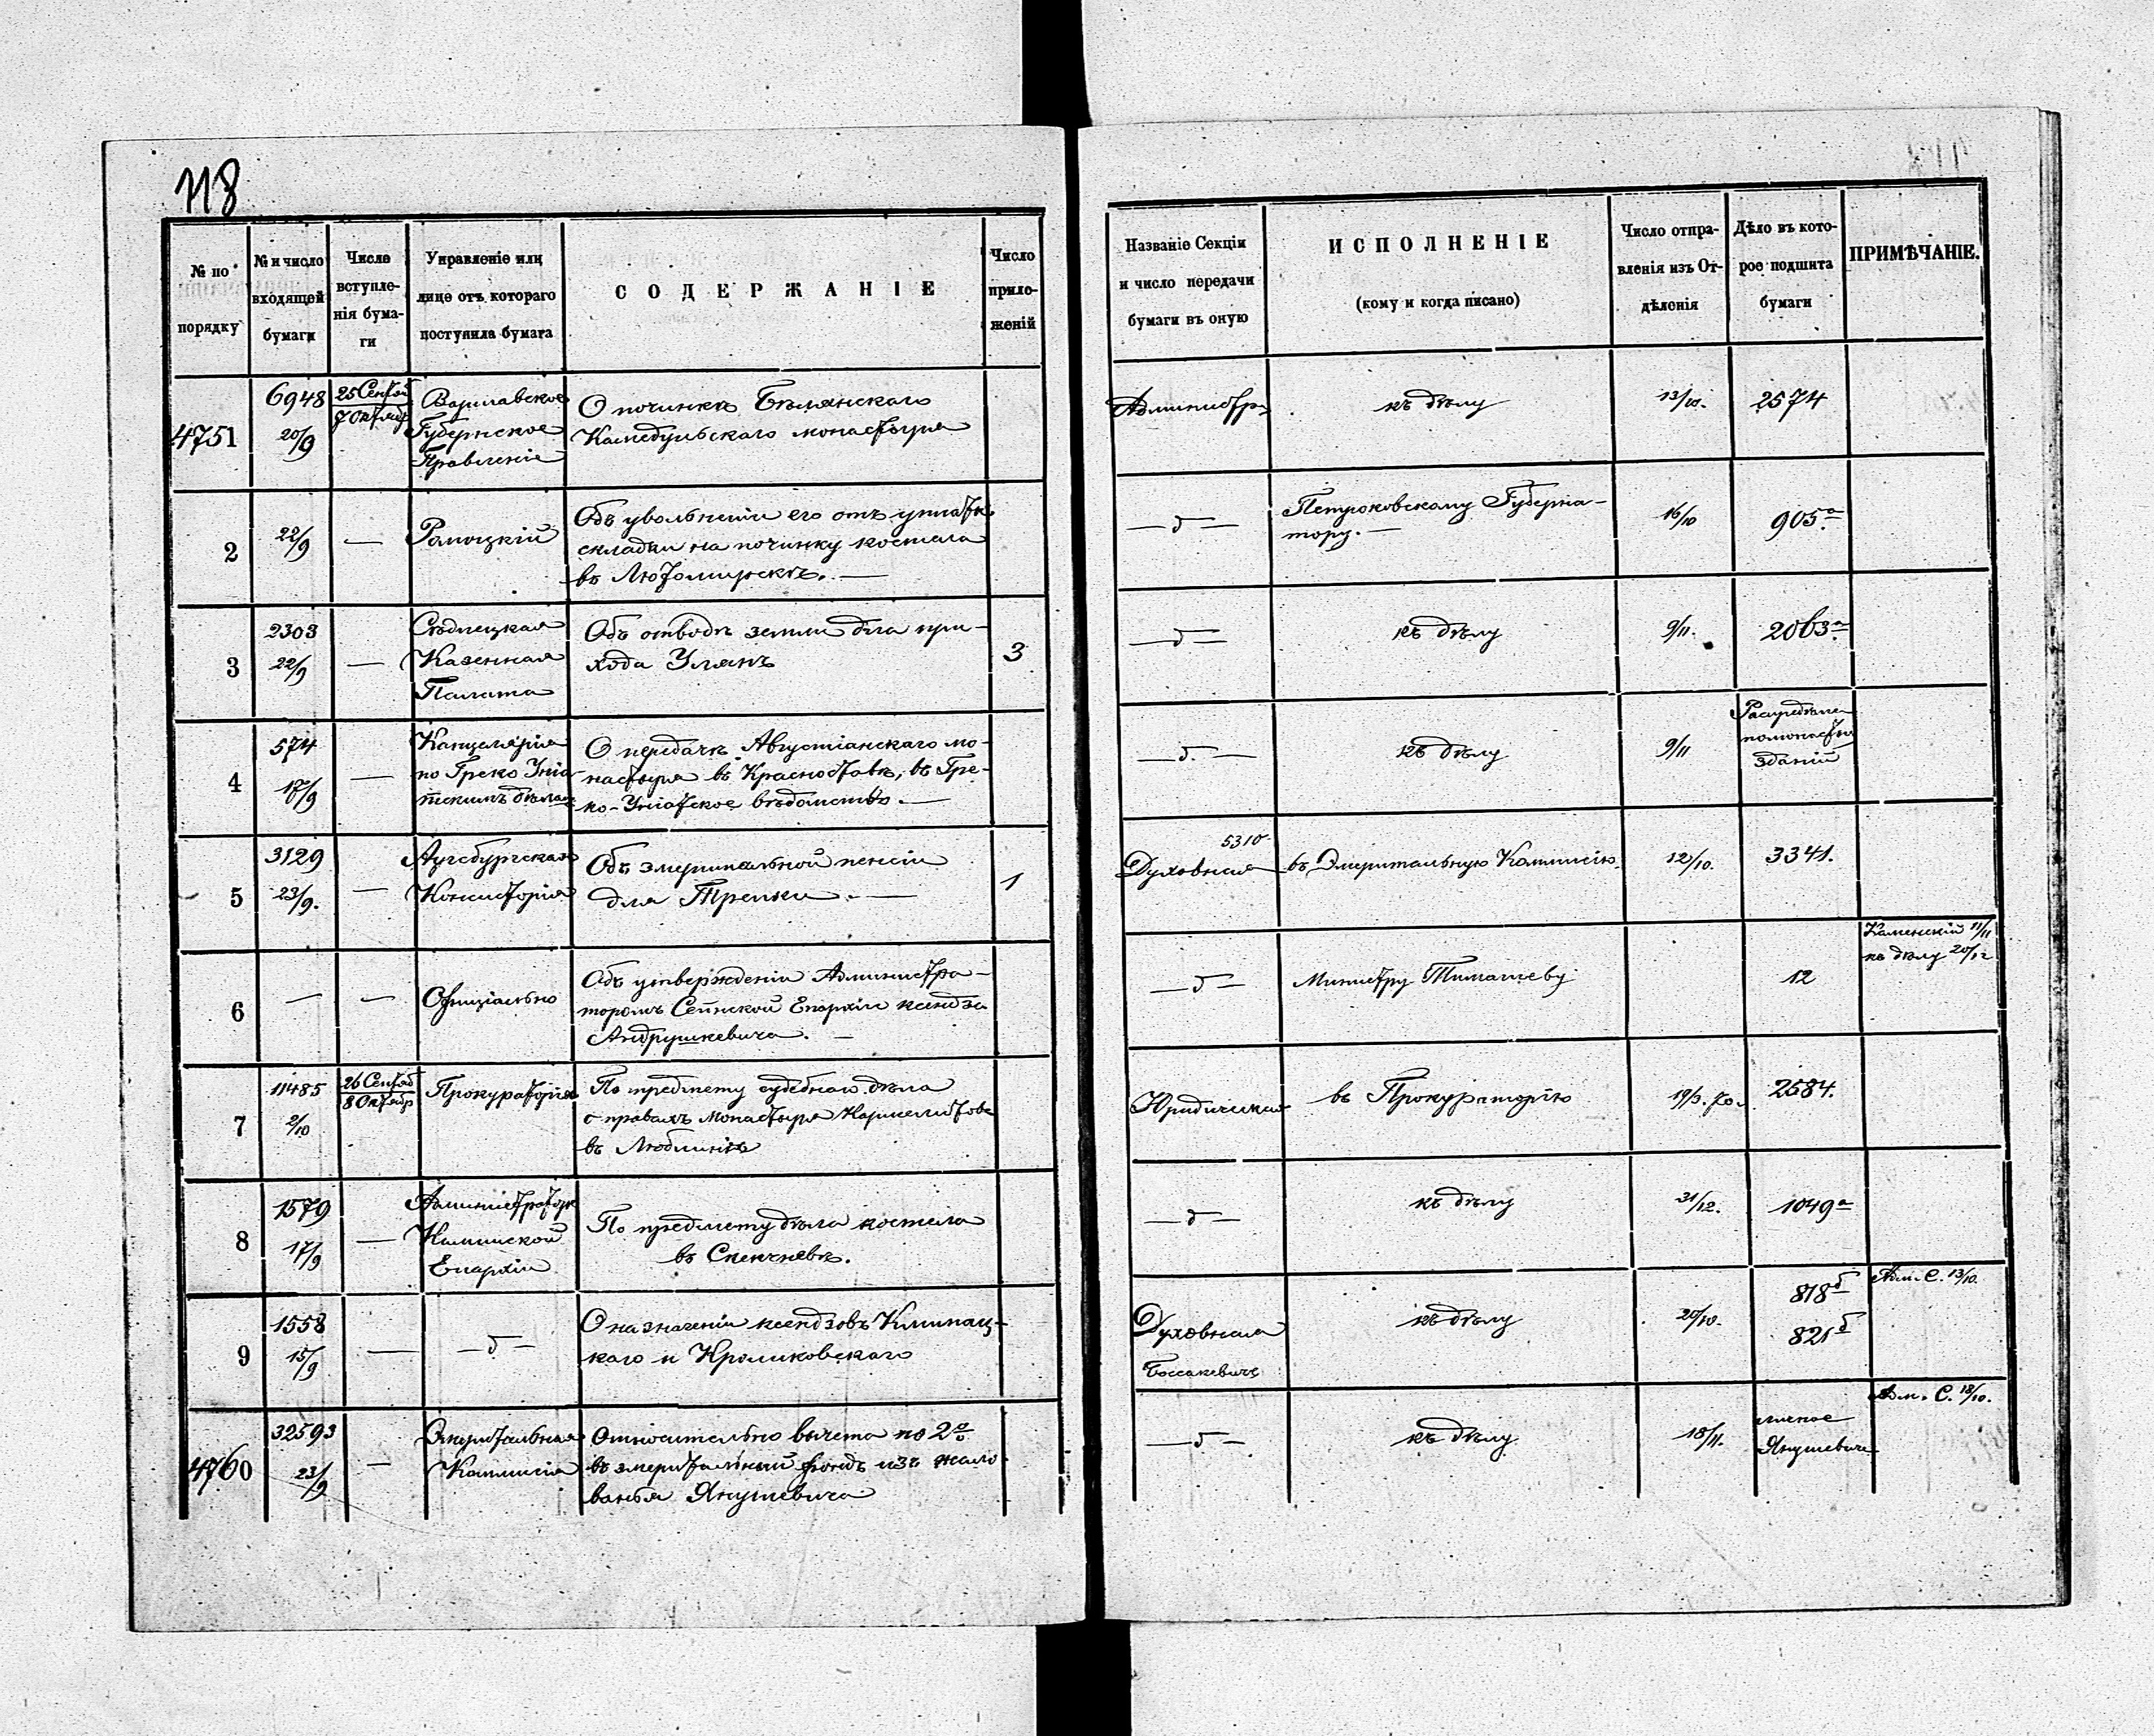 718
№ по порядку
№ и число входящей бумаги
Число вступленія бумаги
Управленіе или лице отъ котораго поступила бумага
СОДЕРЖАНІЕ
Число приложеній
Названіе Секціи и число передачи бумаги въ оную
ИСПОЛНЕНІЕ
(кому и когда писано)
Число отправленія изъ Отдѣленія
Дѣло въ которое подшита бумаги
ПРИМѢЧАНІЕ.
4751
6948
20/9
25 Сентяб
7 Октяб
Варшавское
Губернское
Правленіе
О починкѣ Бѣлянскаго
Камедульскаго монастыря
Администр
къ дѣлу
13/10.
2574
2
22/9
—
Объ увольненіи его отъ уплаты
складки на починку костела
въ Лютомирскѣ. —
— д —
Петроковскому Губерна-
тору. —
16/10
905а
3
2303
22/9
—
Сѣдлецкая
Казенная
Палата
Объ отводѣ земли для при-
хода Улянъ
3
— д —
къ дѣлу
9/11.
2063а
4
574
17/9
—
Канцелярія
по Греко Уніа-
тскимъ дѣламъ
О передачѣ Августіанскаго мо-
настыря въ Красноставѣ, въ Гре-
ко-Уніатское вѣдомство. —
— д. —
къ дѣлу
9/11
зданій
5
3129
23/9.
—
Аугсбургская
Консисторія
Объ эмеритальной пенсіи
для Трепки. —
1
5310
Духовная
въ Эмеритальную Коммисію
12/10.
3341.
6
—
—
Официально
Объ утвержденіи Администра-
торомъ Сейнской Епархіи ксендза
Андрушкевича. —
— д —
Министру Тимашеву
12
Каменскій 11/11
къ дѣлу 20/12
7
11485
2/10
26 Сентяб
8 Октябр
Прокураторія
По предмету судебнаго дѣла
о правахъ монастыря Кармелитовъ
въ Люблинѣ
Юридическая
въ Прокураторію
2584.
8
1579
17/9
—
Администраторъ
Епархіи
По предмету дѣла костела
— д —
къ дѣлу
31/12.
1049а
9
1558
15/9
—
— д —
О назначеніи ксендзовъ
каго и Кроликовскаго
Духовная
Боссакевичъ
къ дѣлу
20/10.
818б
821б
Адм. С. 13/10.
4760
32593
23/9
—
Эмеритальная
Коммисія
Относительно вычета по 2%
въ эмеритальный фондъ изъ жало-
ванья Янушевича
— д —
къ дѣлу
18/11.
личное
Янушевича
Адм. С. 18/10.